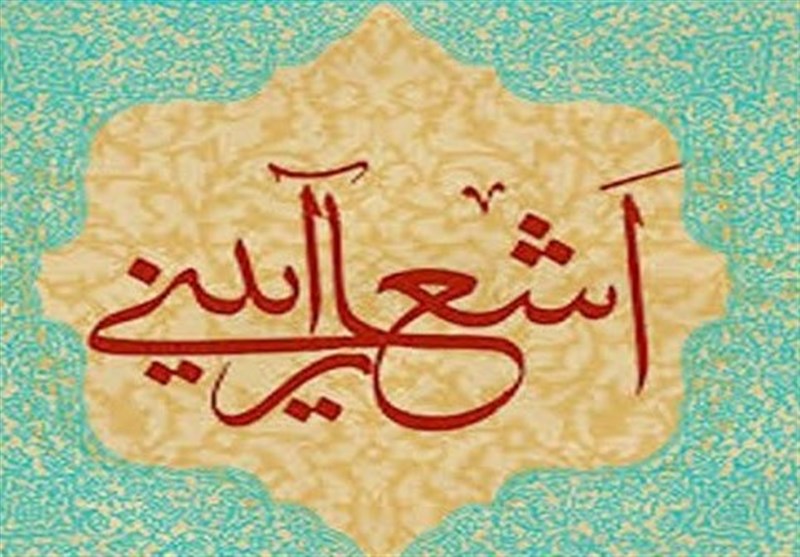 اَشعار آیینی